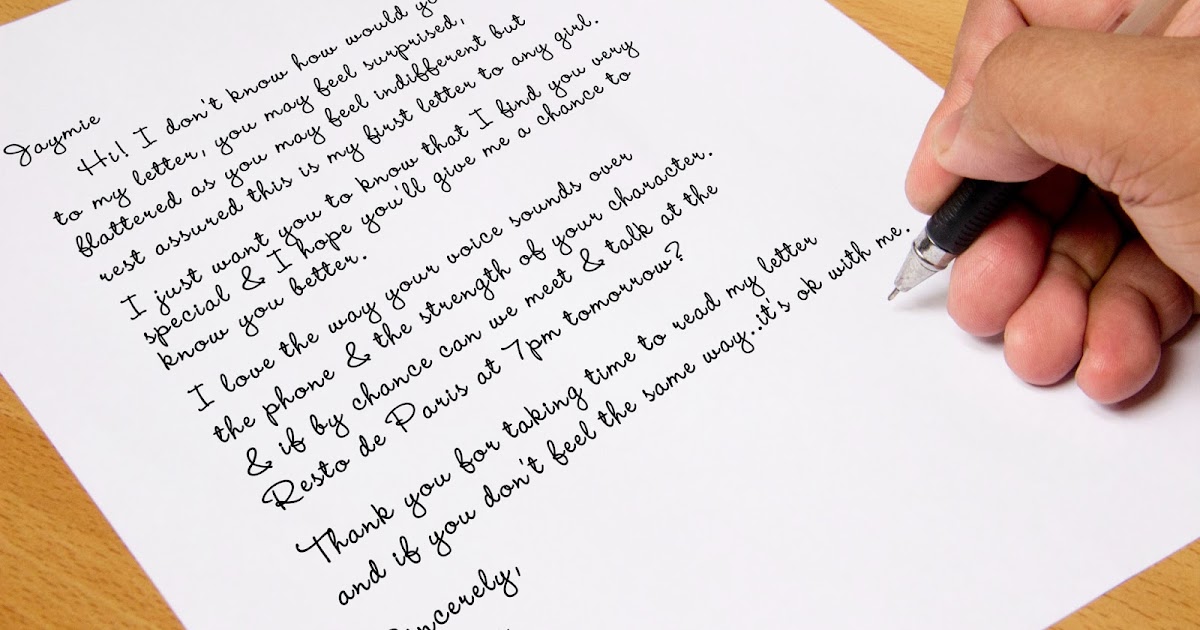 Jaymie
Hi! I don't know how would
to my letter, you may feel surprised,
flattered as you may feel indifferent but
rest assured this is my first letter to any girl.
I just want you to know that I find you very
special & I hope you'll give me a chance to
know you better.
I love the way your voice sounds over
the phone & the strength of your character.
& if by chance can we meet & talk at the
Resto de Paris at 7pm tomorrow?
Thank you for taking time to read my letter
and if you don't feel the same way..it's ok with me.
Sincerely,